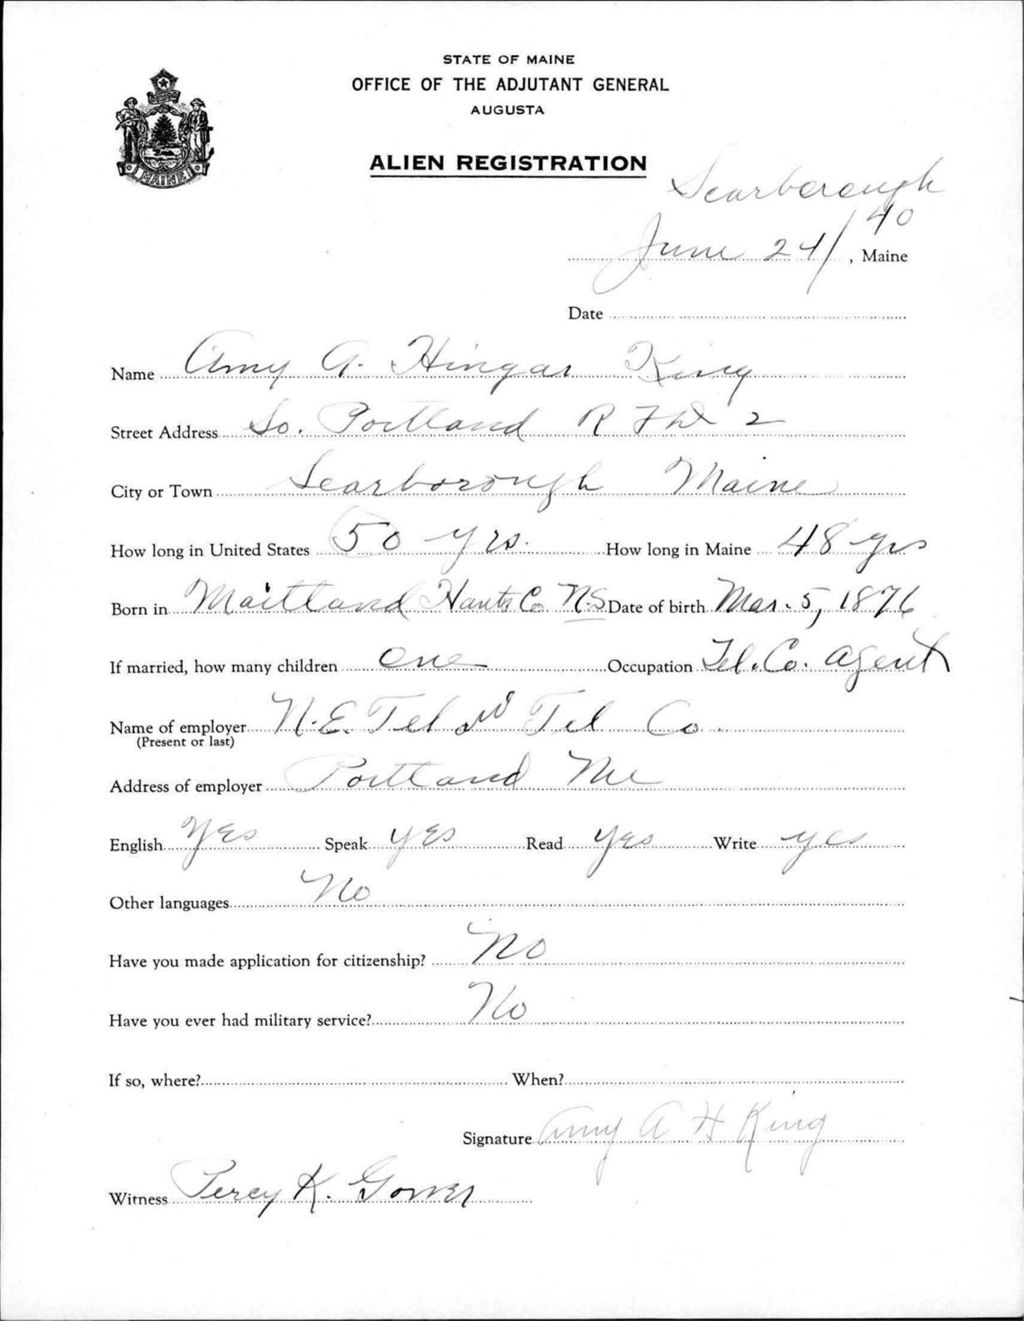 STATE OF MAINE
OFFICE OF THE ADJUTANT GENERAL
AUGUSTA
ALIEN REGISTRATION
MAINE
Scarborough
June 24/40, Maine
Date
Name Amy A. Hingar King
Street Address So. Portland R F D 2
City or Town Scarborough Maine
How long in United States 50 yrs. How long in Maine 48 yrs
Born in Maitland Hants Co. N.S. Date of birth Mar. 5, 1876
If married, how many children one Occupation Tel. Co. agent
Name of employer N.E. Tel & Tel Co.
(Present or last)
Address of employer Portland Me
English Yes Speak yes Read Yes Write yes
Other languages No
Have you made application for citizenship? No
Have you ever had military service? No
If so, where? When?
Signature Amy A H King
Witness Percy K. Gower